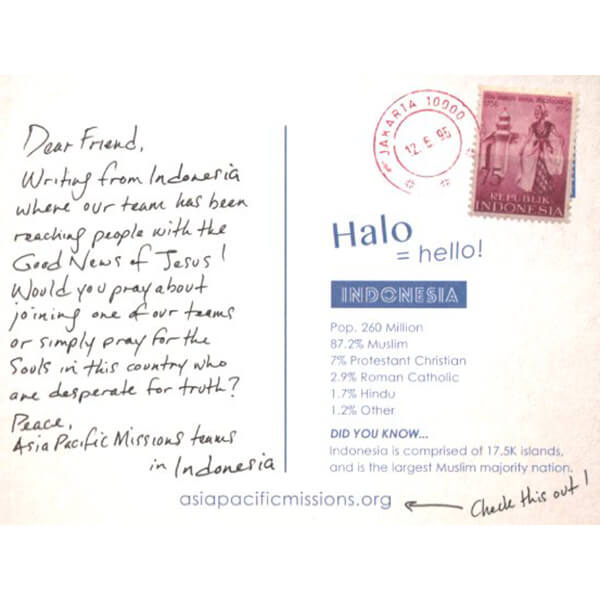 Dear Friend,
Writing from Indonesia
where our team has been
reaching people with the
Good News of Jesus!
Would you pray about
joining one of our teams
or simply pray for the
Souls in this country who
are desperate for truth?
Peace,
Asia Pacific Missions teams
in Indonesia
JAKARTA 10000
12.5.95
REPUBLIK
INDONESIA
Halo
= hello!
INDONESIA
Pop. 260 Million
87.2% Muslim
7% Protestant Christian
2.9% Roman Catholic
1.7% Hindu
1.2% Other
DID YOU KNOW...
Indonesia is comprised of 17.5K islands,
and is the largest Muslim majority nation.
asiapacificmissions.org
Check this out!